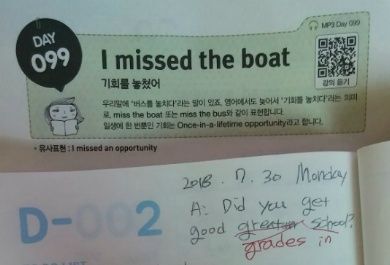 DAY
099
MP3 Day 099
I missed the boat
기회를 놓쳤어
강의 듣기
우리말에 '버스를 놓치다'라는 말이 있죠. 영어에서도 늦어서 '기회를 놓치다'라는 의미
로, miss the boat 또는 miss the bus와 같이 표현합니다.
일생에 한 번뿐인 기회는 Once-in-a-lifetime opportunity라고 합니다.
• 유사표현 : I missed an opportunity
2018. 7. 30 Monday
D-002
A: Did you get
good school?
grades in